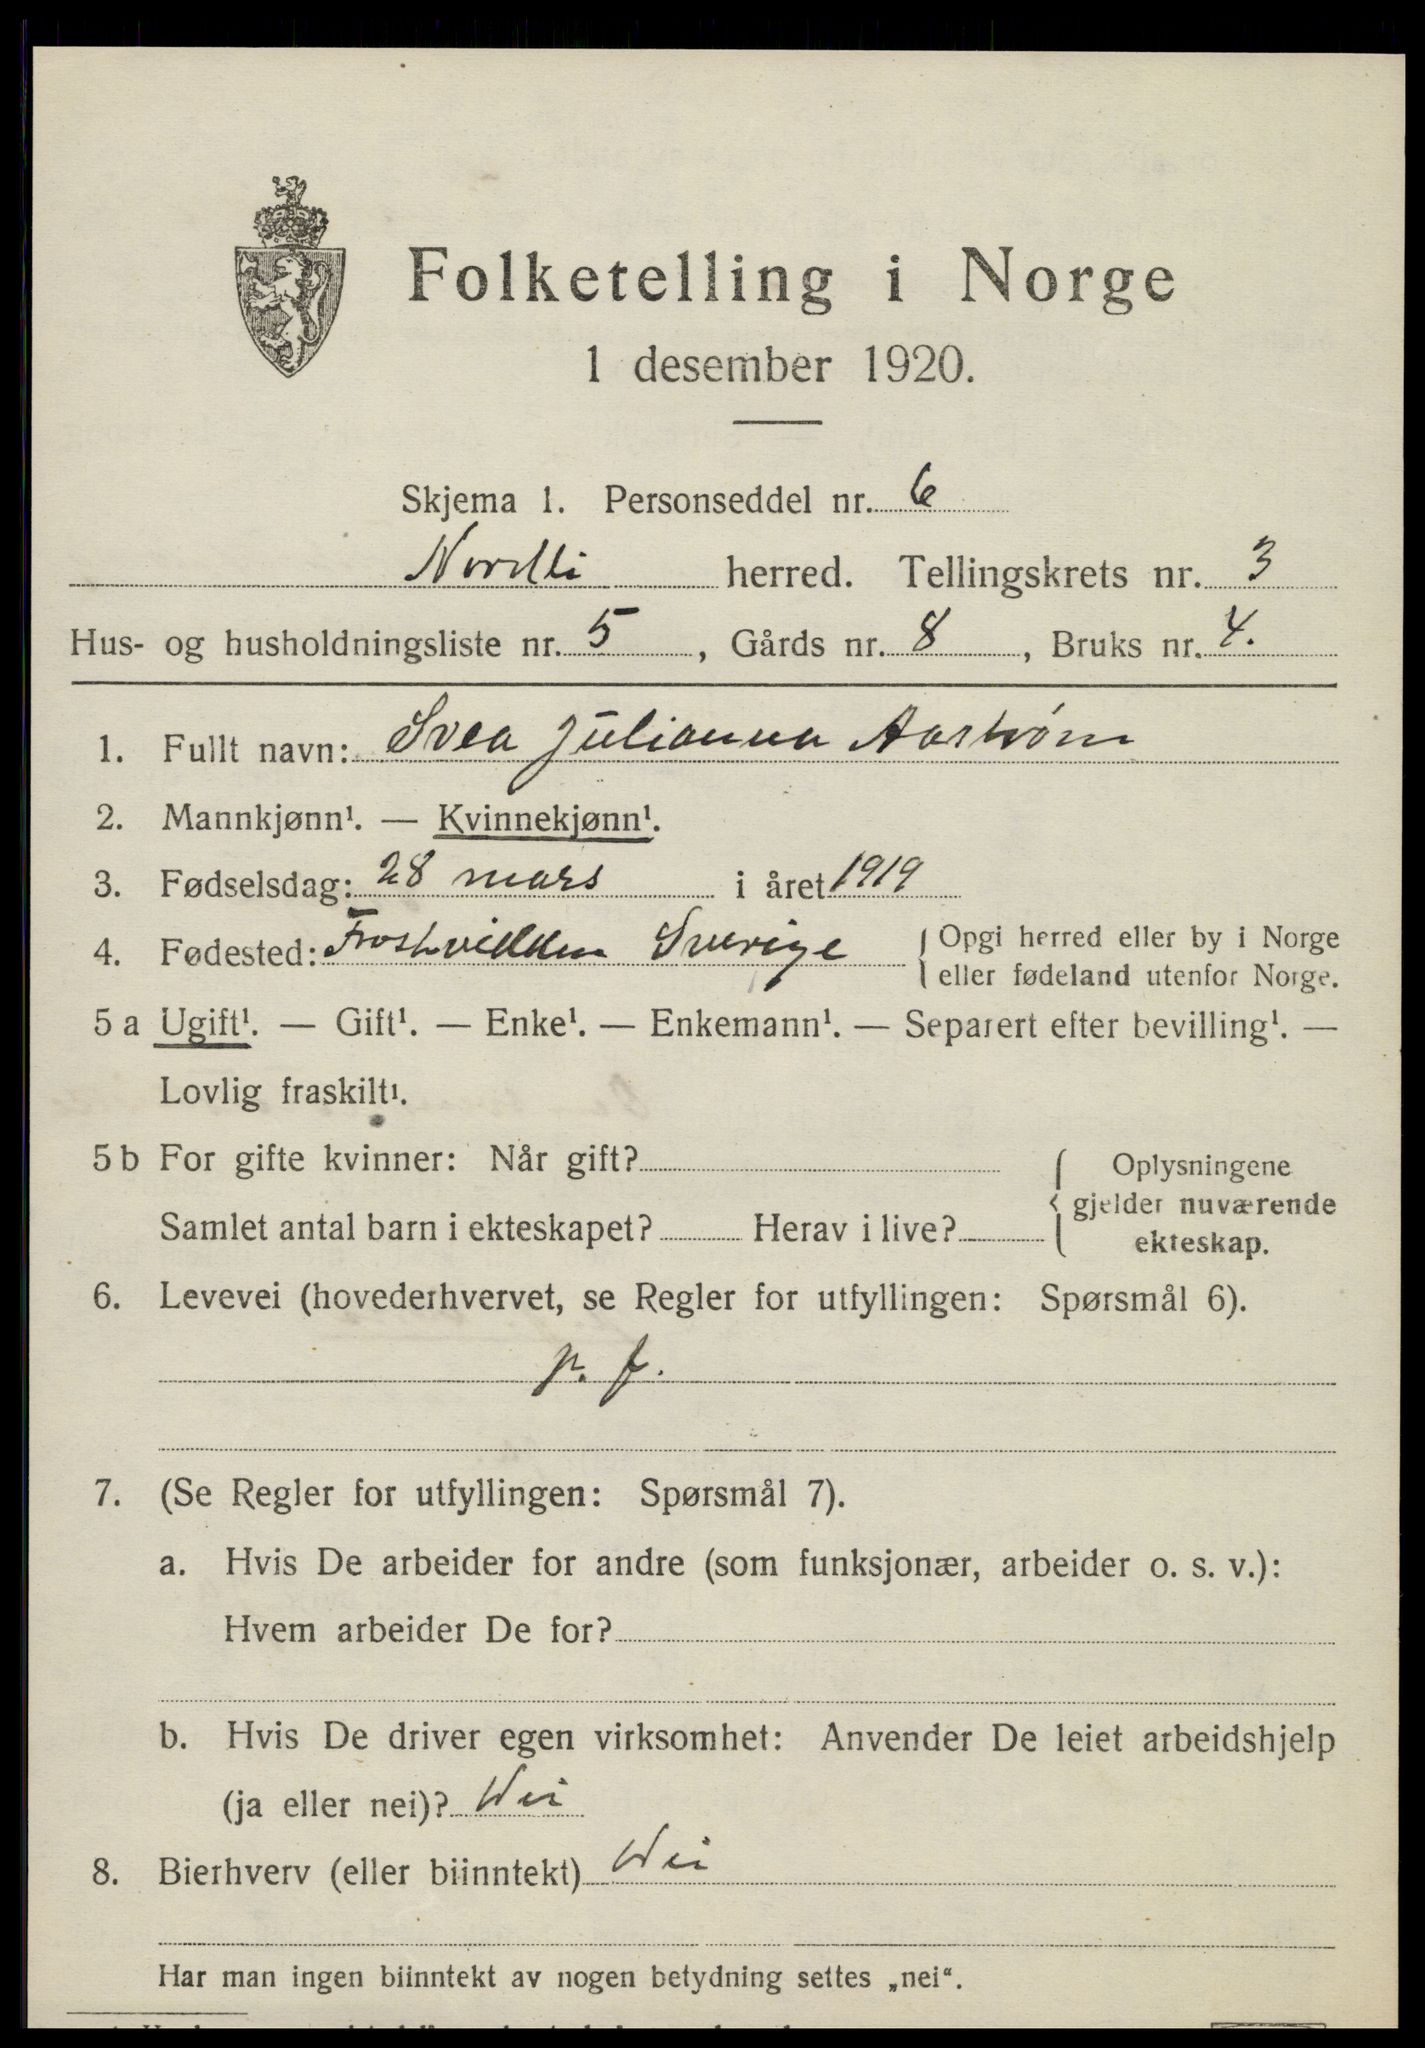 Folketelling i Norge
1 desember 1920.
Skjema 1. Personseddel nr. 6
Nordli herred. Tellingskrets nr. 3
Hus- og husholdningsliste nr. 5, Gårds nr. 8, Bruks nr. 4.
1. Fullt navn: Svea Julianna Aastrøm
2. Mannkjønn¹. — Kvinnekjønn¹.
3. Fødselsdag: 28 mars i året 1919
4. Fødested: Frostvikken Sverige { Opgi herred eller by i Norge
eller fødeland utenfor Norge.
5 a Ugift¹. — Gift¹. — Enke¹. — Enkemann¹. — Separert efter bevilling¹. —
Lovlig fraskilt¹.
5 b For gifte kvinner: Når gift? { Oplysningene
gjelder nuværende
Samlet antal barn i ekteskapet? Herav i live? ekteskap.
6. Levevei (hovederhvervet, se Regler for utfyllingen: Spørsmål 6).
p. f.
7. (Se Regler for utfyllingen: Spørsmål 7).
a. Hvis De arbeider for andre (som funksjonær, arbeider o. s. v.):
Hvem arbeider De for?
b. Hvis De driver egen virksomhet: Anvender De leiet arbeidshjelp
(ja eller nei)? Nei
8. Bierhverv (eller biinntekt) Nei
Har man ingen biinntekt av nogen betydning settes „nei“.